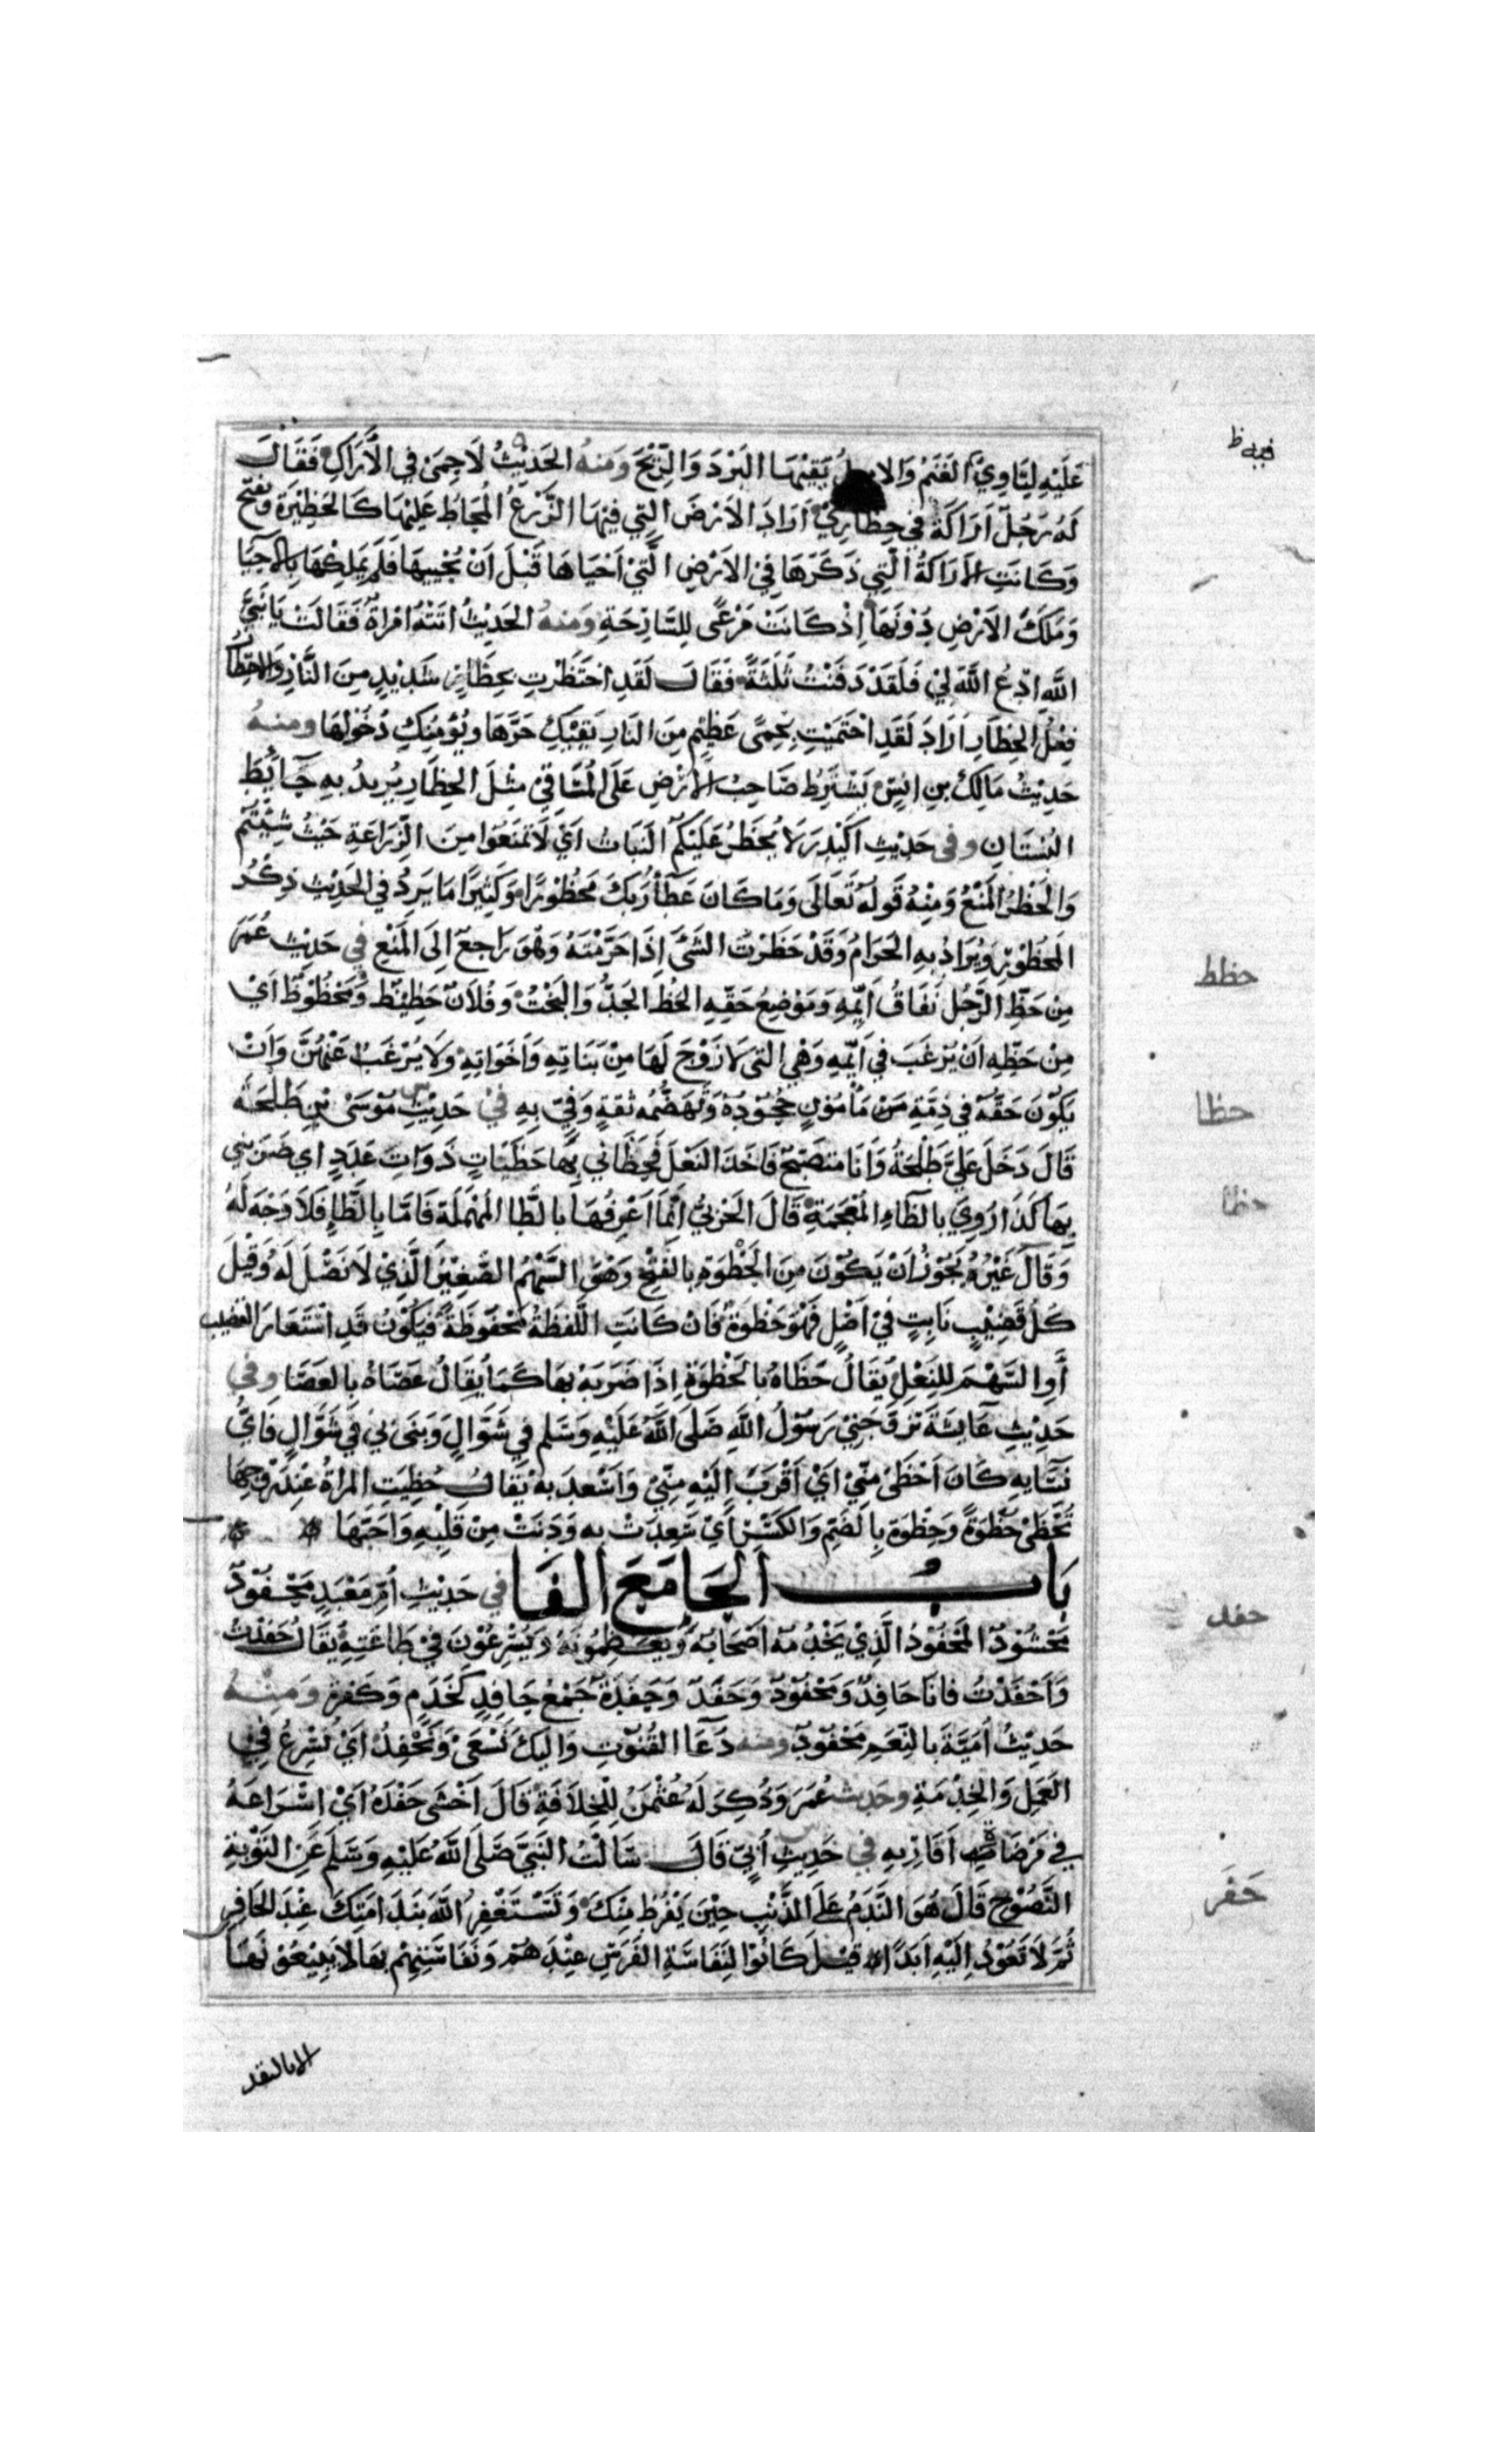 فيه ظ
عَلَيْهِ لِتَاوِيَ الغَنَمُ وَالابل يَقِيْهَا البَرْدَ وَالرِّيْحَ وَمنهُ الحَدِيْثُ لَا حِمَى فِي الأَرَاكِ فَقَالَ
لَهُ رَجُلٌ اَرَاكَةٌ فِي حِظَارِيْ اَرَادَ الاَرْضَ الَّتِي فِيْهَا الزَّرْعُ المُحَاطُ عَلَيْهَا كَالحَظِيْرَةِ وَتُفْتَحُ
وَكَانَتِ الاَرَاكَةُ الَّتِي ذَكَرَهَا فِي الاَرْضِ الَّتِيْ اَحْيَاهَا قَبْلَ اَنْ يُحْيِيهَا فَلَمْ يَمْلِكْهَا بِالاِحْيَا
وَمَلَكَ الاَرْضَ دُوْنَهَا اِذْ كَانَتْ مَرْعًى لِلسَّارِحَةِ وَمنهُ الحَدِيْثُ اَتَتْهُ امْرَاةٌ فَقَالَتْ يَا نَبِيَّ
اللهِ ادْعُ اللهَ لِيْ فَلَقَدْ دَفَنْتُ ثَلٰثَةً فَقَالَ لَقَدِ احْتَظَرْتِ بِحِظَارٍ شَدِيْدٍ مِنَ النَّارِ وَالاحتِظَارُ
فِعْلُ الحِظَارِ اَرَادَ لَقَدِ احْتَمَيْتِ بِحِمًى عَظِيْمٍ مِنَ النَارِ يَقِيْكِ حَرَّهَا وَيُؤْمِنُكِ دُخُوْلَهَا ومنهُ
حَدِيْثُ مَالِكِ بنِ انَسٍ يَشْتَرِطُ صَاحِبُ الاَرْضِ عَلَى المُسَاقِيْ مِثْلَ الحِظَارِ يُرِيدُ بِهِ حَآيِطَ
البُسْتَانِ وفي حَدِيْثِ اُكَيْدِرَ لَا يُحْظَرُ عَلَيْكُمُ النَبَاتُ اَيْ لَا تُمْنَعُوا مِنَ الزِّرَاعَةِ حَيْثُ شِئْتُمْ
وَالحَظْرُ المَنْعُ وَمِنْهُ قَولُه تَعَالَى وَمَا كَانَ عَطَآءُ رَبِّكَ مَحْظُوْرًا وَكَثِيْرًا مَا يَرِدُ فِي الحَدِيْثِ ذِكْرُ
المَحْظُوْرِ وَيُرَادُ بِهِ الحَرَامُ وَقَدْ حَظَرْتُ الشَّىْءَ اِذَا حَرَّمْتَهُ وَهُوَ رَاجِعٌ اِلَى المَنْعِ في حَدِيْثِ عُمَرَ
حظظ
مِنْ حَظِّ الرَّجُلِ نَفَاقُ اَيِّمِهِ وَمَوْضِعُ حَقِّهِ الحَظُّ الجَدُّ وَالبَخْتُ وَفُلاَنٌ حَظِيْظٌ وَمَحْظُوْظٌ اَيْ
مِنْ حَظِّهِ اَنْ يُرْغَبَ فِي اَيِّمِهِ وَهْيَ التِي لَا زَوْجَ لَهَا مِنْ بَنَاتِهِ وَاَخَوَاتِهِ وَلَا يُرْغَبَ عَنْهُنَّ وَاَنْ
يَكُوْنَ حَقُّهُ فِي ذِمَّةِ مَنْ مَأْمُوْنٍ جُحُوْدُهُ وَتَهَضُّمُه ثِقَةٍ وَفِيٍّ بِهِ فِيْ حَدِيْثِ مُوْسَى بْنِ طَلْحَةَ
حظا
قَالَ دَخَلَ عَلَيَّ طَلْحَةُ وَاَنَا مُتَصَبِّحٌ فَاَخَذَ النَعْلَ فَحَظَانِي بِهَا حَظَيَاتٍ ذَوَاتِ عَدَدٍ اي ضَرَبَنِي
بِهَا كَذَا رُوِيَ بِالظَاءِ المُعْجَمَةِ قَالَ الحَرْبِيُّ اِنَّمَا اَعْرِفُهَا بِالطَّا المُهْمَلَةِ فَامَّا بِالظَّاءِ فَلاَ وَجْهَ لَهُ
وَقَالَ غَيْرُهُ يَجُوْزُ اَنْ يَكُوْنَ مِنَ الحَظْوَةِ بِالفَتْحِ وَهُوَ السَّهْمُ الصَّغِيْرُ الَّذِيْ لَا نَصْلَ لَهُ وَقِيْلَ
كُلُّ قَضِيْبٍ نَابِتٍ فِيْ اَصْلٍ فَهُوَ حَظْوَةٌ فَانْ كَانَتِ اللَّفْظَةُ مَحْفُوْظَةً فَيَكُوْنُ قَدِ اسْتَعَارَ القَضِيْبَ
أَوِ السَّهْمَ لِلنَّعْلِ يُقَالُ حَظَاهُ بِالحَظْوَةِ اِذَا ضَرَبَهُ بِهَا كَمَا يُقَالُ عَصَاهُ بِالعَصَا وفي
حَدِيْثِ عَآيِشَةَ تَزَوَّجَنِيْ رَسُوْلُ اللهِ صَلَّى اللهُ عَلَيْهِ وَسَلَم فِي شَوَّالٍ وَبَنَى بِيْ فِي شَوَّالٍ فَايُّ
نِسَآيِهِ كَانَ اَحْظَى مِنِّيْ اَيْ اَقْرَبَ اِلَيْهِ مِنِّيْ وَاَسْعَدَ بِهِ يُقَالُ حَظِيَتِ المَرْاةُ عِنْدَ زَوْجِهَا
تَحْظَى حُظْوَةً وَحِظْوَةً بِالضَمِّ وَالكَسْرِ اَيْ سَعِدَتْ بِهِ وَدَنَتْ مِنْ قَلْبِهِ وَاَحَبَّهَا
بَابُ الحَا مَعَ الفَا في حَدِيْثِ اُمِّ مَعْبَدٍ مَحْفُوْدٌ
حفد
مَحْشُوْدٌ المَحْفُوْدُ الَّذِيْ يَخْدُمُه اَصْحَابُهُ وَيُعَظِّمُوْنَهُ وَيُسْرِعُوْنَ فِيْ طَاعَتِهِ يُقَالُ حَفَدْتُ
وَاَحْفَدْتُ فَانَا حَافِدٌ وَمَحْفُوْدٌ وَحَفَدٌ وَحَفَدَةٌ جَمْعُ حَافِدٍ كَخَدَمٍ وَكَفَرَةٍ وَمِنْهُ
حَدِيْثُ اُمَيَّةَ بِالنِّعَمِ مَحْفُوْدٌ ومنه دُعَآ القُنُوْتِ وَالَيكَ نَسْعَى وَنَحْفِدُ اَيْ نُسْرِعُ فِي
العَمَلِ وَالخِدْمَةِ وحَدِيثُ عُمَرَ وَذُكِرَ لَهُ عُثْمٰنُ لِلْخِلَافَةِ قَالَ اَخْشَى حَفْدَهُ اَيْ اِسْرَاعَهُ
فِي مَرْضَاةِ اَقَارِبِهِ في حَدِيْثِ اُبَيٍّ قَالَ سَاَلْتُ النَبِيَّ صَلَّى اللهُ عَلَيْهِ وَسَلَّمَ عَنِ التَوْبَةِ
حَفَرَ
النَّصُوْحِ قَالَ هُوَ النَّدَمُ عَلَى الذَّنْبِ حِيْنَ يَفْرُطُ مِنْكَ وَتَسْتَغْفِرُ اللهَ بِنَدَامَتِكَ عِنْدَ الحَافِرِ
ثُمَّ لَا تَعُوْدُ اِلَيْهِ اَبَدًا قِيْلَ كَانُوْا لِنَفَاسَةِ الفَرَسِ عِنْدَهُمْ وَنَفَاسَتِهِمْ بِهَا لَا يَبِيْعُوْنَهَا
الا بالنقد